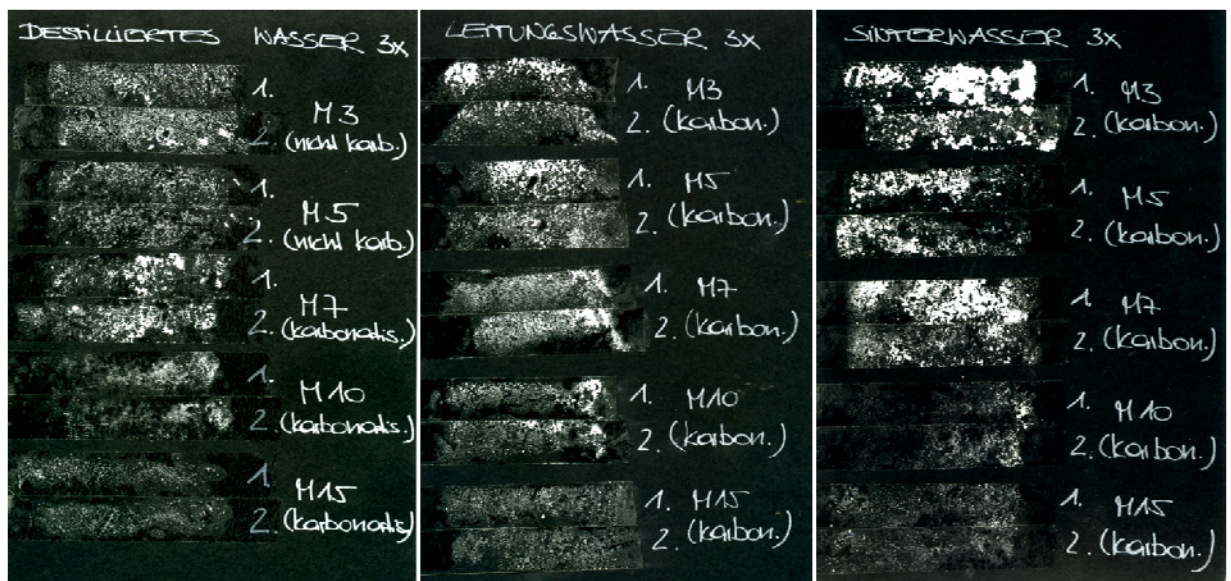 DESTILLIERTES WASSER 3x
1.
M3
2. (nicht karb.)
1.
M5
2. (nicht karb.)
1.
M7
2. (karbonatis.)
1.
M10
2. (karbonatis.)
1.
M15
2. (karbonatis.)
LEITUNGSWASSER 3x
1. M3
2. (karbon.)
1. M5
2. (karbon.)
1. M7
2. (karbon.)
1. M10
2. (karbon.)
1. M15
2. (karbon.)
SINTERWASSER 3x
1. M3
2. (karbon.)
1. M5
2. (karbon.)
1. M7
2. (karbon.)
1. M10
2. (karbon.)
1. M15
2. (karbon.)